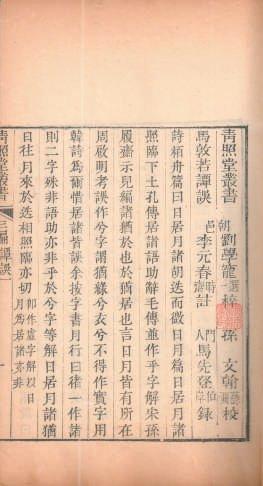 青照堂叢書
朝邑劉學寵選梓 孫文翰校
馬敦若譚誤 邑李元春時齋訂 門人馬先登伯岸錄
詩柏舟篇曰日居月諸胡迭而微日月篇日居月諸
照臨下土孔傳居諸語助辭毛傳並作乎字解宋孫
履齋示兒編諸猶於也於猶居也言日月皆有所在
周啟明考誤作兮字謂猶綠兮衣兮不得作實字用
韓詩為爾惜居諸皆誤余按字書月行曰 一作諸
則二字殊非語助亦非乎於兮字等解日居月諸猶
日往月來於迭相照臨亦切即作虛字解以日月為居諸亦非
青照堂叢書
三編 譚誤
一